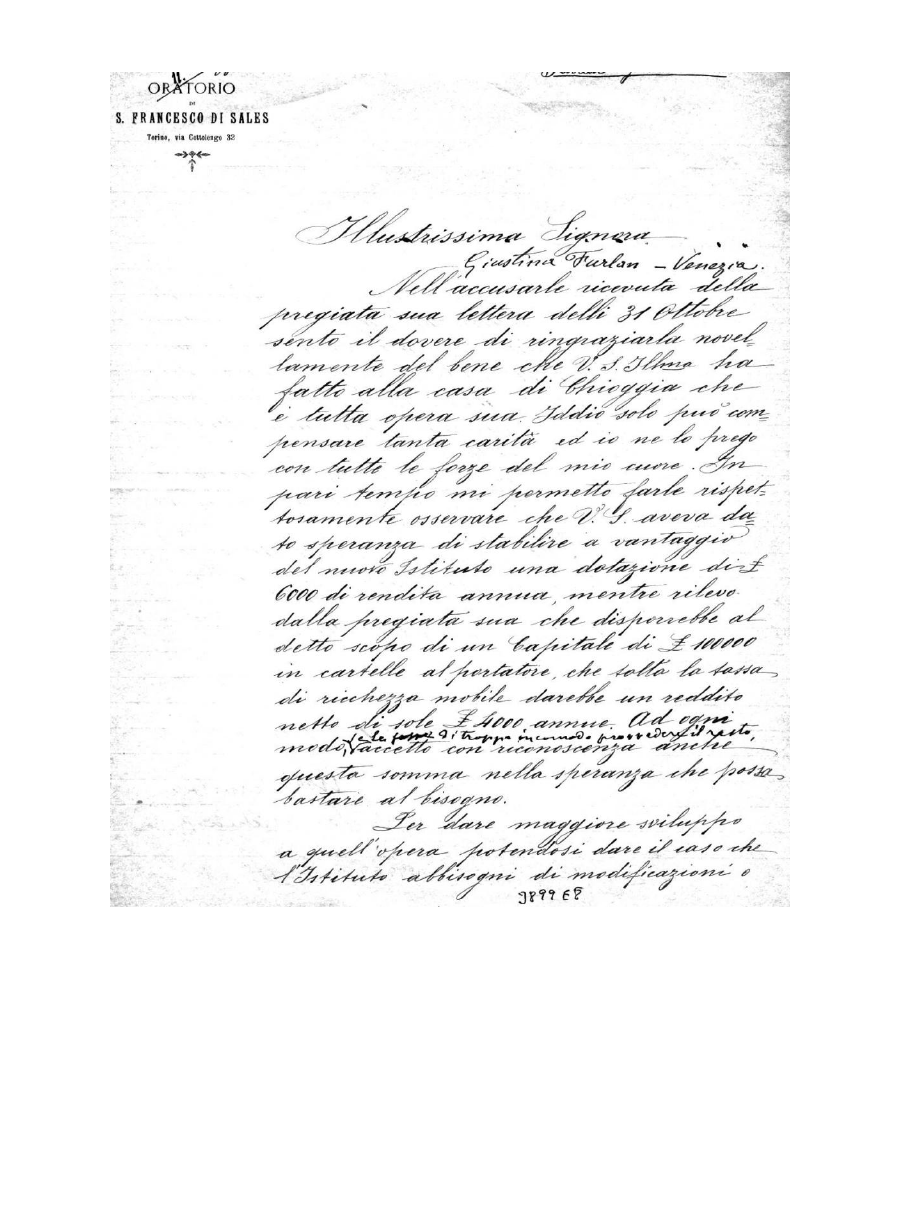 ORATORIO
DI
S. FRANCESCO DI SALES
Torino, via Cottolengo 32
Illustrissima Signora
Giustina Furlan – Venezia.
Nell'accusarle ricevuta della
pregiata sua lettera delli 31 Ottobre
sento il dovere di ringraziarla novel=
lamente del bene che V. S. Illma ha
fatto alla casa di Chioggia che
è tutta opera sua. Iddio solo può com=
pensare tanta carità ed io ne lo prego
con tutte le forze del mio cuore. In
pari tempo mi permetto farle rispet=
tosamente osservare che V. S. aveva da=
to speranza di stabilire a vantaggio
del nuovo Istituto una dotazione di £
6000 di rendita annua, mentre rilevo
dalla pregiata sua che disporrebbe al
detto scopo di un Capitale di £ 100000
in cartelle al portatore, che tolta la tassa
di ricchezza mobile darebbe un reddito
netto di sole £ 4000 annue. Ad ogni
se le fosse di troppo incomodo provvedere il resto,
modo, accetto con riconoscenza anche
questa somma nella speranza che possa
bastare al bisogno.
Per dare maggiore sviluppo
a quell'opera potendosi dare il caso che
l'Istituto abbisogni di modificazioni o
3899 E8